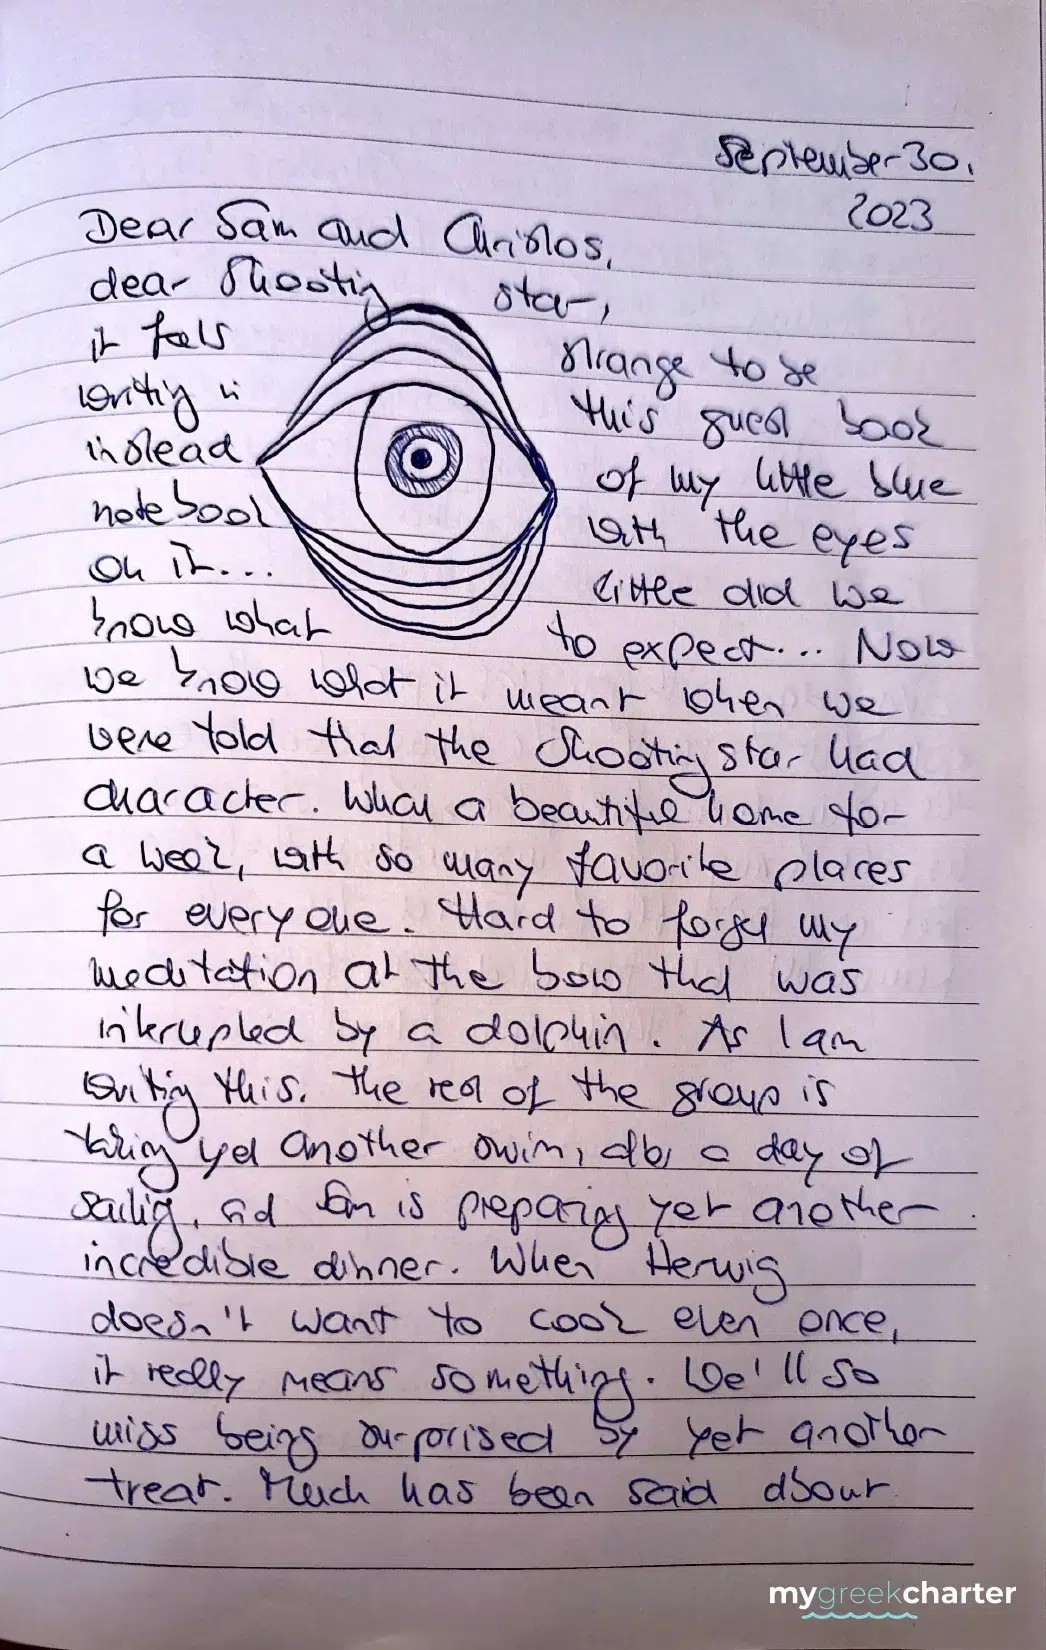 September 30.
2023
Dear Sam and Christos,
dear Shooting star,
it feels strange to be
writing in this guest book
instead of my little blue
notebook with the eyes
on it... little did we
know what to expect... Now
we know what it meant when we
were told that the Shooting star had
character. What a beautiful home for
a week, with so many favorite places
for everyone. Hard to forget my
meditation at the bow that was
interrupted by a dolphin. As I am
writing this. the rest of the group is
taking yet another swim, after a day of
sailing, and Sam is preparing yet another
incredible dinner. When Herwig
doesn't want to cook even once,
it really means something. We'll so
miss being surprised by yet another
treat. Much has been said about
mygreekcharter